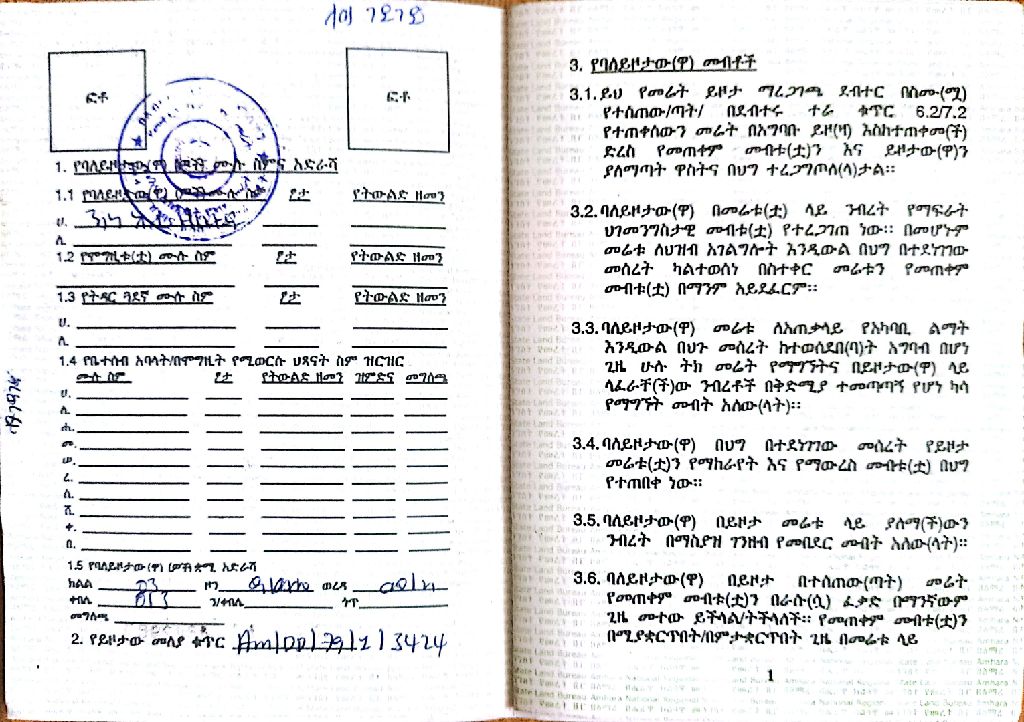 ፎቶ
ፎቶ
1. የባለይዞታው(ዋ) ሙሉ ስምና አድራሻ
1.1 የባለይዞታው(ዋ) ሙሉ ስም ፆታ የትውልድ ዘመን
ሀ.
ለ.
1.2 የሞግዚቱ(ቷ) ሙሉ ስም ፆታ የትውልድ ዘመን
1.3 የትዳር ጓደኛ ሙሉ ስም ፆታ የትውልድ ዘመን
ሀ.
ለ.
1.4 የቤተሰብ አባላት/በሞግዚት የሚወርሱ ህጻናት ስም ዝርዝር
ሙሉ ስም ፆታ የትውልድ ዘመን ዝምድና መግለጫ
ሀ.
ለ.
ሐ.
መ.
ሠ.
ረ.
ሰ.
ሸ.
ቀ.
በ.
1.5 የባለይዞታው(ዋ) ቋሚ አድራሻ
ክልል 03 ዞን ወረዳ
ቀበሌ 013 ን/ቀበሌ ጎጥ
መግለጫ
2. የይዞታው መለያ ቁጥር Am/DD/79/1/3424
3. የባለይዞታው(ዋ) መብቶች
3.1. ይህ የመሬት ይዞታ ማረጋገጫ ደብተር በስሙ(ሟ)
የተሰጠው/ጣት/ በደብተሩ ተራ ቁጥር 6.2/7.2
የተጠቀሰውን መሬት በአግባቡ ይዞ(ዛ) እስከተጠቀመ(ች)
ድረስ የመጠቀም መብቱ(ቷ)ን እና ይዞታው(ዋ)ን
ያለማጣት ዋስትና በህግ ተረጋግጦለ(ላ)ታል።
3.2. ባለይዞታው(ዋ) በመሬቱ(ቷ) ላይ ንብረት የማፍራት
ህገመንግስታዊ መብቱ(ቷ) የተረጋገጠ ነው። በመሆኑም
መሬቱ ለህዝብ አገልግሎት እንዲውል በህግ በተደነገገው
መሰረት ካልተወሰነ በስተቀር መሬቱን የመጠቀም
መብቱ(ቷ) በማንም አይደፈርም።
3.3. ባለይዞታው(ዋ) መሬቱ ለአጠቃላይ የአካባቢ ልማት
እንዲውል በህጉ መሰረት ከተወሰደበ(ባ)ት አግባብ በሆነ
ጊዜ ሁሉ ትክ መሬት የማግኘትና በይዞታው(ዋ) ላይ
ላፈራቸ(ች)ው ንብረቶች በቅድሚያ ተመጣጣኝ የሆነ ካሳ
የማግኘት መብት አለው(ላት)።
3.4. ባለይዞታው(ዋ) በህግ በተደነገገው መሰረት የይዞታ
መሬቱ(ቷ)ን የማከራየት እና የማውረስ መብቱ(ቷ) በህግ
የተጠበቀ ነው።
3.5. ባለይዞታው(ዋ) በይዞታ መሬቱ ላይ ያለማ(ች)ውን
ንብረት በማስያዝ ገንዘብ የመበደር መብት አለው(ላት)።
3.6. ባለይዞታው(ዋ) በይዞታ በተሰጠው(ጣት) መሬት
የመጠቀም መብቱ(ቷ)ን በራሱ(ሷ) ፈቃድ በማንኛውም
ጊዜ መተው ይችላል/ትችላለች። የመጠቀም መብቱ(ቷ)ን
በሚያቋርጥበት/በምታቋርጥበት ጊዜ በመሬቱ ላይ
1